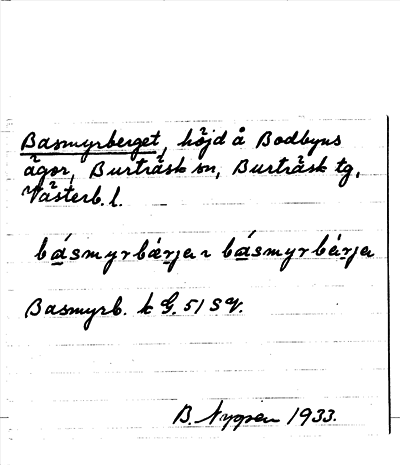 Basmyrberget, höjd å Bodbyns
ägor, Burträsk sn, Burträsk tg,
Västerb. l.
básmyrbærjer ~ básmyrbérjer
Basmyrb. k G. 51 S V.
B. Nygren 1933.